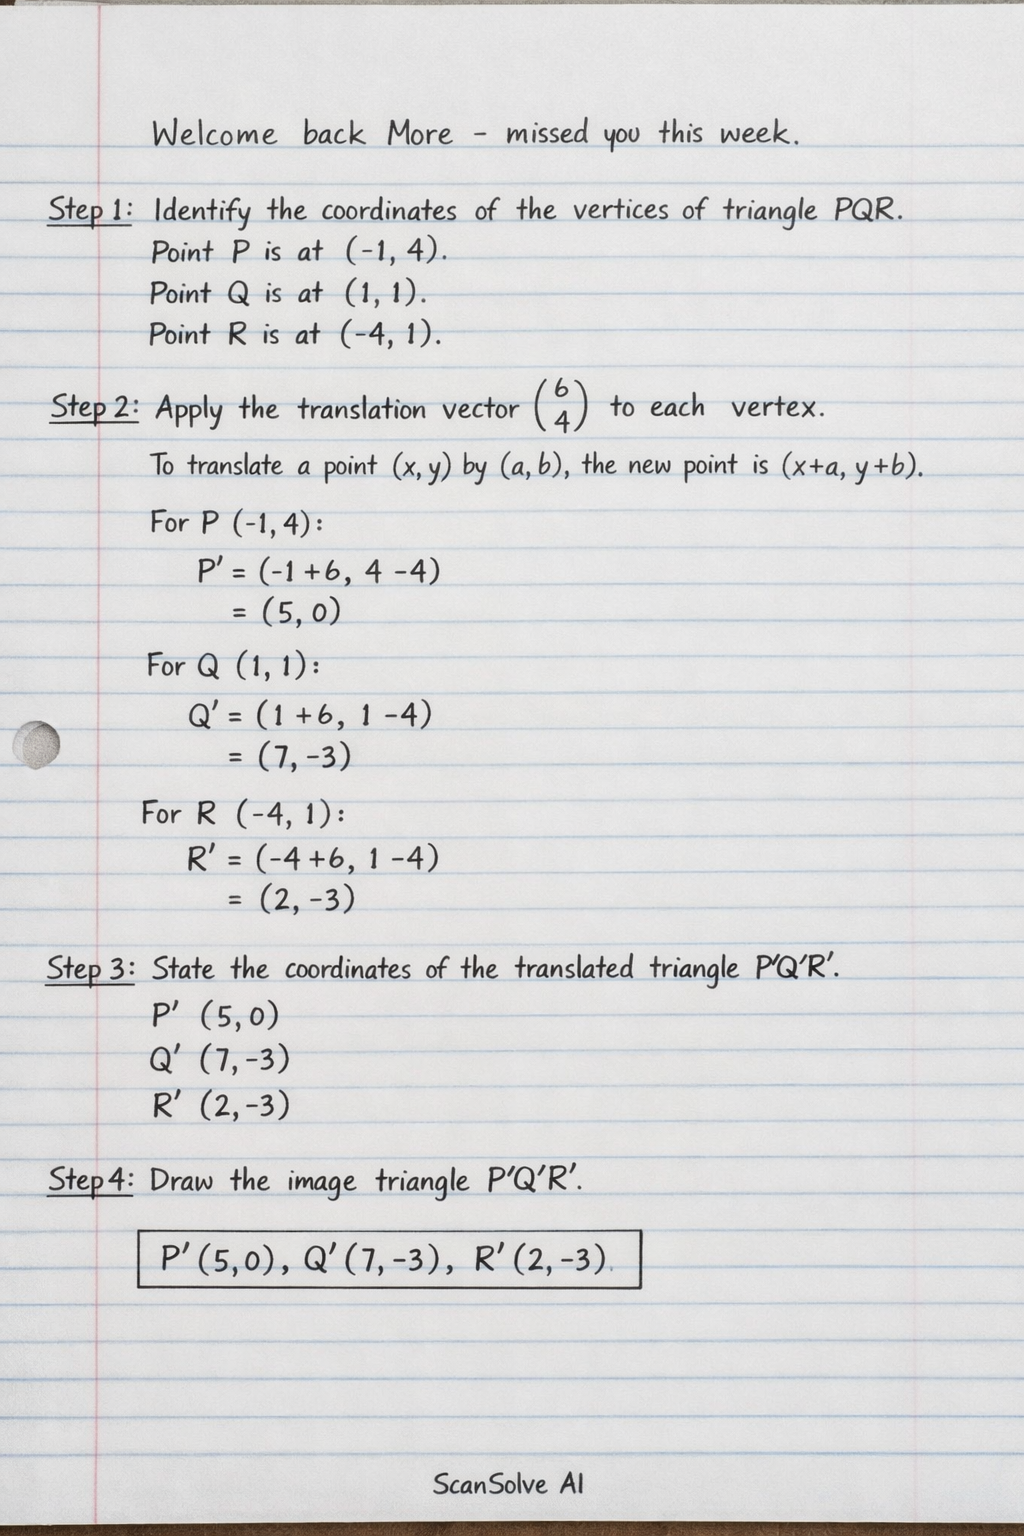 Welcome back More - missed you this week.
Step 1: Identify the coordinates of the vertices of triangle PQR.
Point P is at (-1, 4).
Point Q is at (1, 1).
Point R is at (-4, 1).
Step 2: Apply the translation vector (6 4) to each vertex.
To translate a point (x, y) by (a, b), the new point is (x+a, y+b).
For P (-1, 4):
P' = (-1 +6, 4 -4)
= (5, 0)
For Q (1, 1):
Q' = (1 +6, 1 -4)
= (7, -3)
For R (-4, 1):
R' = (-4 +6, 1 -4)
= (2, -3)
Step 3: State the coordinates of the translated triangle P'Q'R'.
P' (5, 0)
Q' (7, -3)
R' (2, -3)
Step 4: Draw the image triangle P'Q'R'.
P' (5,0), Q' (7, -3), R' (2, -3).
ScanSolve AI